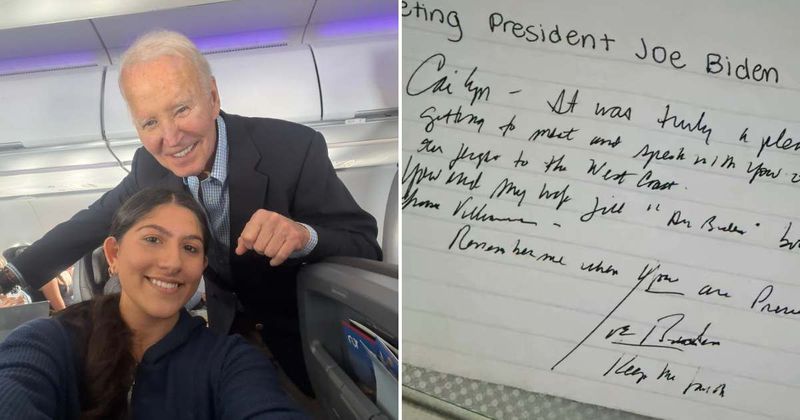 eting President Joe Biden
Cailyn - It was truly a plea
getting to meet and speak with you
to the West Coast.
You and my wife Jill "Dr Biden" b
Villanova -
Remember me when you are Pres
Joe Biden
Keep the faith